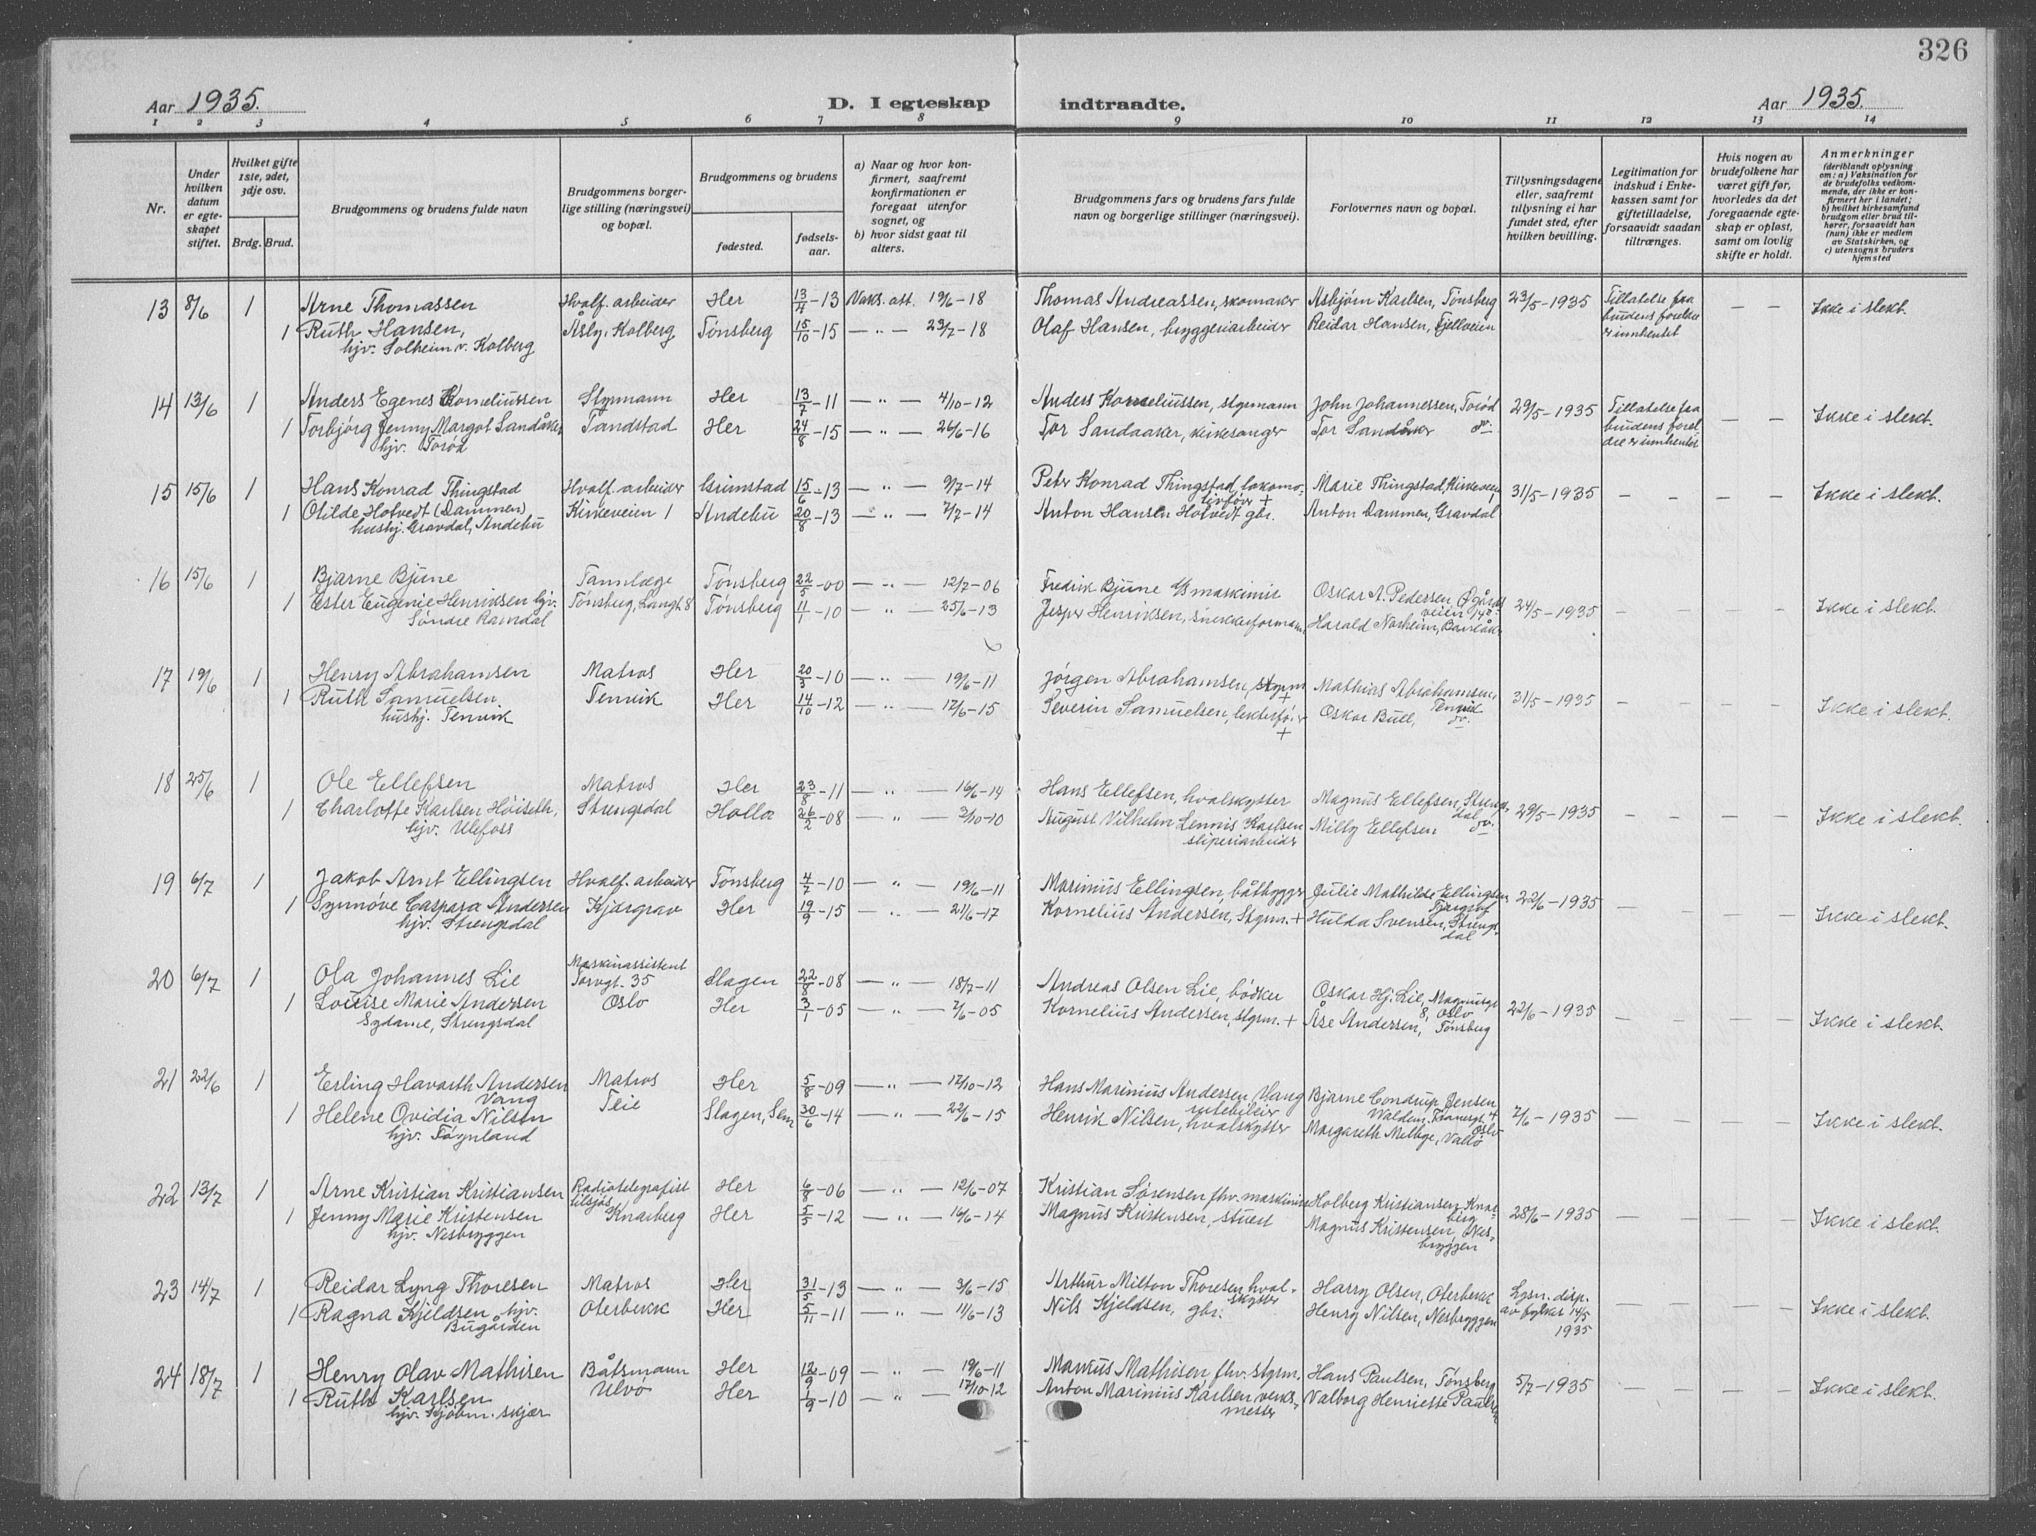 326
Aar 1935.
D. I egteskap indtraadte.
Aar 1935.
1 2 3 4 5 6 7 8 9 10 11 12 13 14
Nr.
Under hvilken datum er egteskapet stiftet.
Hvilket gifte 1ste, 2det, 3dje osv.
Brdg. Brud.
Brudgommens og brudens fulde navn
Brudgommens borgerlige stilling (næringsvei) og bopæl.
Brudgommens og brudens
fødested.
fødselsaar.
a) Naar og hvor konfirmert, saafremt konfirmationen er foregaat utenfor sognet, og
b) hvor sidst gaat til alters.
Brudgommens fars og brudens fars fulde navn og borgerlige stillinger (næringsvei).
Forlovernes navn og bopæl.
Tillysningsdagene eller, saafremt tillysning ei har fundet sted, efter hvilken bevilling.
Legitimation for indskud i Enkekassen samt for giftetilladelse, forsaavidt saadan tiltrænges.
Hvis nogen av brudefolkene har været gift før, hvorledes da det foregaaende egteskap er opløst, samt om lovlig skifte er holdt.
Anmerkninger
(deriblandt oplysning om: a) Vaksination for de brudefolks vedkommende, der ikke er konfirmert her i landet; b) hvilket kirkesamfund brudgom eller brud tilhører, forsaavidt han (hun) ikke er medlem av Statskirken, og c) utensogns bruders hjemsted
13 8/6 1 Arne Thomassen Hvalf. arbeider Her 13/4-13 Vaks. att. 19/6-18 Thomas Andreassen, skomaker Asbjørn Karlsen, Tønsberg 23/5-1935 Tillatelse fra — — Ikke i slekt.
1 Ruth Hansen, Åsly, Kolberg Tønsberg 15/10-15 — „ — 23/7-18 Olaf Hansen, bryggeriarbeider Reidar Hansen, Fjellveien brudens foreldre
hjv. Solheim v. Kolberg er innhentet
14 13/6 1 Anders Egenes Korneliussen Styrmann Her 13/7-11 — „ — 4/10-12 Anders Korneliussen, styrmann John Johannessen, Torød 29/5-1935 Tillatelse fra — — Ikke i slekt.
1 Torbjørg Jenny Margot Sandåker Tandstad Her 24/8-15 — „ — 26/6-16 Tor Sandaaker, kirkesanger Tor Sandåker brudens forel-
hjv. Torød dre er innhentet
15 15/6 1 Hans Konrad Thingstad Hvalf. arbeider Grimstad 15/6-13 — „ — 9/7-14 Peter Konrad Thingstad, lokomo- Marie Thingstad, Kirkeveien 1 31/5-1935 — — — Ikke i slekt.
tivfører +
1 Otilde Hotvedt (Dammen) Kirkeveien 1 Andebu 20/8-13 — „ — 7/7-14 Anton Hansen Hotvedt gbr. Anton Dammen, Gravdal
hushj. Gravdal, Andebu
16 15/6 1 Bjarne Bjune Tannlæge Tønsberg 22/5-00 — „ — 12/7-06 Fredrik Bjune maskinist Oskar A. Pedersen, Øgårds- 24/5-1935 — — — Ikke i slekt.
veien 14
1 Ester Eugenie Henriksen hjv. Tønsberg, Langt. 8 Tønsberg 11/1-10 — „ — 25/6-13 Jesper Henriksen, snekkerformann Harald Norheim,
Søndre Ramdal
17 19/6 1 Henry Abrahamsen Matros Her 20/3-10 — „ — 19/6-11 Jørgen Abrahamsen, styrm + Mathias Abrahamsen, Tenvik 31/5-1935 — — — Ikke i slekt.
1 Ruth Samuelsen, Tenvik Her 14/10-12 — „ — 17/6-15 Severin Samuelsen, lekterfører + Oskar Bull,
hushj. Tenvik
18 25/6 1 Ole Ellefsen Matros Her 23/8-11 — „ — 16/6-14 Hans Ellefsen, hvalskytter Magnus Ellefsen, Strengsdal 29/5-1935 — — — Ikke i slekt.
1 Charlotte Karlsen Høiseth, Strengsdal Holla 26/2-08 — „ — 2/10-10 August Vilhelm Lennis Karlsen Milly Ellefsen
hjv. Ulefoss sliperiarbeider
19 6/7 1 Jakob Arnt Ellingsen Hvalf. arbeider Tønsberg 4/7-10 — „ — 19/6-11 Marinius Ellingsen, båtbygger Julie Mathilde Ellingsen 22/6-1935 — — — Ikke i slekt.
1 Synnøve Caspara Andersen Kjærgrav Her 19/9-15 — „ — 21/6-17 Kornelius Andersen, Styrm. + Hulda Svensen, Strengs-
hjv. Strengsdal dal
20 6/7 1 Ola Johannes Lie Maskinassistent Slagen 22/8-08 — „ — 18/7-11 Andreas Olsen Lie, bødker Oskar Hj. Lie, Magnusgt 22/6-1935 — — — Ikke i slekt.
Torvgt. 35 8, Oslo
1 Louise Marie Andersen Oslo Her 3/1-05 — „ — 7/6-05 Kornelius Andersen, styrm. + Åse Andersen, Tønsberg
Sydame, Strengsdal
21 22/6 1 Erling Havarth Andersen Matros Her 5/8-09 — „ — 17/10-12 Hans Marinius Andersen Vang Bjarne Condrup Jensen 7/6-1935 — — — Ikke i slekt.
Vang Teie rutebileier
1 Helene Ovidia Nilsen Slagen, Sem 30/6-14 — „ — 22/6-15 Henrik Nilsen, hvalskytter Margareth Melbye, Vallø
hjv. Føynland
22 13/7 1 Arne Kristian Kristiansen Radiotelegrafist Her 6/8-06 — „ — 12/6-07 Kristian Sørensen fhv. maskinist Holberg Kristiansen, Knar- 28/6-1935 — — — Ikke i slekt.
tilsjøs berg
1 Jenny Marie Kristensen Knarberg Her 5/5-12 — „ — 16/6-14 Magnus Kristensen, stuert Magnus Kristensen, Nes-
hjv. Nesbryggen bryggen
23 14/7 1 Reidar Lyng Thoresen Matros Her 31/5-13 — „ — 3/6-15 Arthur Milton Thoresen, hval- Harry Olsen, Oterbekk Lysn. disp. — — — Ikke i slekt.
skytter
1 Ragna Kjeldsen, hjv. Oterbekk Her 5/11-11 — „ — 11/6-13 Nils Kjeldsen, gbr. Henry Nilsen, Nesbryggen av fylket 14/5
Bugården 1935
24 18/7 1 Henry Olav Mathisen Båtsmann Her 12/9-09 — „ — 19/6-11 Markus Mathisen fhv. styrm. Hans Paulsen, Tønsberg 5/7-1935 — — — Ikke i slekt.
1 Ruth Karlsen Ulvø Her 1/9-10 — „ — 17/10-12 Anton Marinius Karlsen verks- Valborg Henriette Paulsen
hjv. Kjøbm. skjær mester